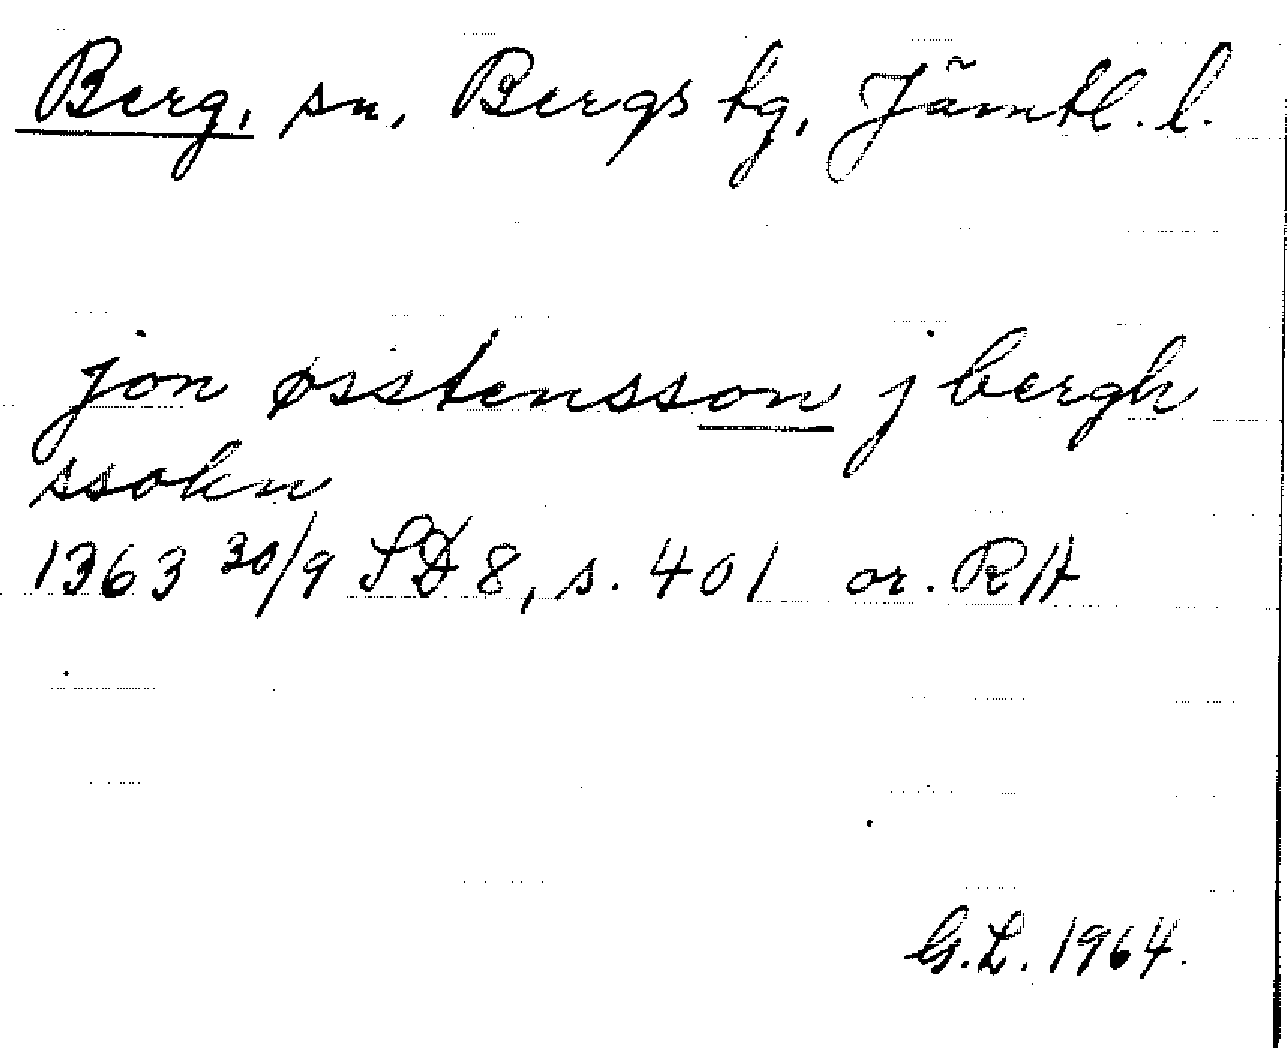 Berg, sn, Bergs tg, Jämtl. l.
jon østensson j bergh
ssokn
1363 30/9 SD 8, s. 401 or. RA
G.L. 1964.